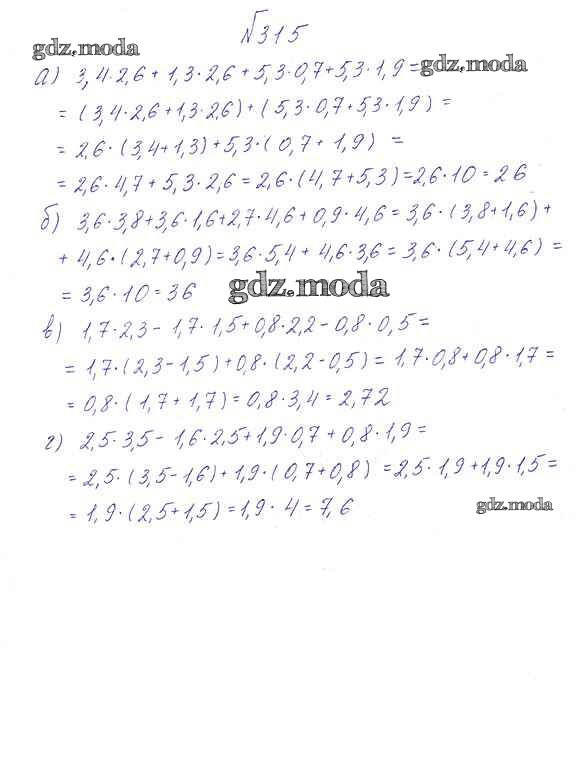 №315
gdz.moda
а) 3,4·2,6 + 1,3·2,6 + 5,3·0,7 + 5,3·1,9 = gdz.moda
= (3,4·2,6 + 1,3·2,6) + (5,3·0,7 + 5,3·1,9) =
= 2,6·(3,4 + 1,3) + 5,3·(0,7 + 1,9) =
= 2,6·4,7 + 5,3·2,6 = 2,6·(4,7 + 5,3) = 2,6·10 = 26
б) 3,6·3,8 + 3,6·1,6 + 2,7·4,6 + 0,9·4,6 = 3,6·(3,8 + 1,6) +
+ 4,6·(2,7 + 0,9) = 3,6·5,4 + 4,6·3,6 = 3,6·(5,4 + 4,6) =
= 3,6·10 = 36 gdz.moda
в) 1,7·2,3 - 1,7·1,5 + 0,8·2,2 - 0,8·0,5 =
= 1,7·(2,3 - 1,5) + 0,8·(2,2 - 0,5) = 1,7·0,8 + 0,8·1,7 =
= 0,8·(1,7 + 1,7) = 0,8·3,4 = 2,72
г) 2,5·3,5 - 1,6·2,5 + 1,9·0,7 + 0,8·1,9 =
= 2,5·(3,5 - 1,6) + 1,9·(0,7 + 0,8) = 2,5·1,9 + 1,9·1,5 =
= 1,9·(2,5 + 1,5) = 1,9·4 = 7,6
gdz.moda